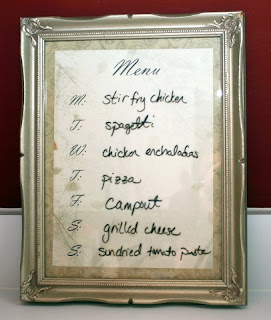 Menu
M: stir fry chicken
T: spagetti
W: chicken enchaladas
T: pizza
F: Campout
S: grilled cheese
S: sundried tomato pasta